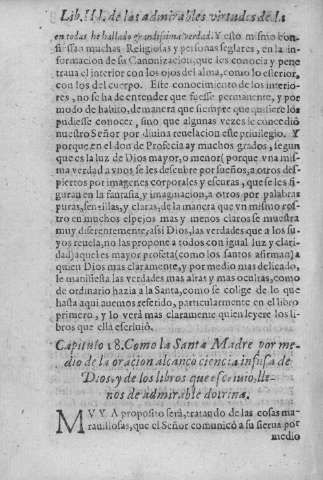 Lib. III. de las admirables virtudes de la
en todas he hallado grandisima verdad. Y esto mismo con-
fiessan muchas Religiosas y personas seglares, en la in-
formacion de su Canonizacion, que les conocia y pene
traua el interior con los ojos del alma, como lo esterior,
con los del cuerpo. Este conocimiento de los interio-
res, no se ha de entender que fuesse permanente, y por
modo de habito, de manera que siempre que quisiere los
pudiesse conocer, sino que algunas vezes le concedió
nuestro Señor por diuina reuelacion este priuilegio. Y
porque en el don de Profecia ay muchos grados, segun
que es la luz de Dios mayor, o menor (porque vna mis-
ma verdad a vnos se les descubre por sueños, a otros des-
piertos por imagenes corporales y escuras, que se les fi-
guran en la fantasia, y imaginacion, a otros por palabras
puras, senzillas, y claras, de la manera que vn mismo ros-
tro en muchos espejos mas y menos claros se muestra
muy diferentemente, assi Dios, las verdades que a los su-
yos reuela, no las propone a todos con igual luz y clari-
dad) aquel es mayor profeta (como los santos afirman) a
quien Dios mas claramente, y por medio mas delicado,
le manifiesta las verdades mas altas y mas ocultas, como
de ordinario hazia a la Santa, como se colige de lo que
hasta aqui auemos referido, particularmente en el libro
primero, y lo verá mas claramente quien leyere los li-
bros que ella escriuió.
Capitulo 18. Como la Santa Madre por me-
dio de la oracion alcançò ciencia infusa de
Dios, y de los libros que escriuio, lle-
nos de admirable dotrina.
MVY A proposito será, tratando de las cosas ma-
rauillosas, que el Señor comunicó a su sierua por
medio